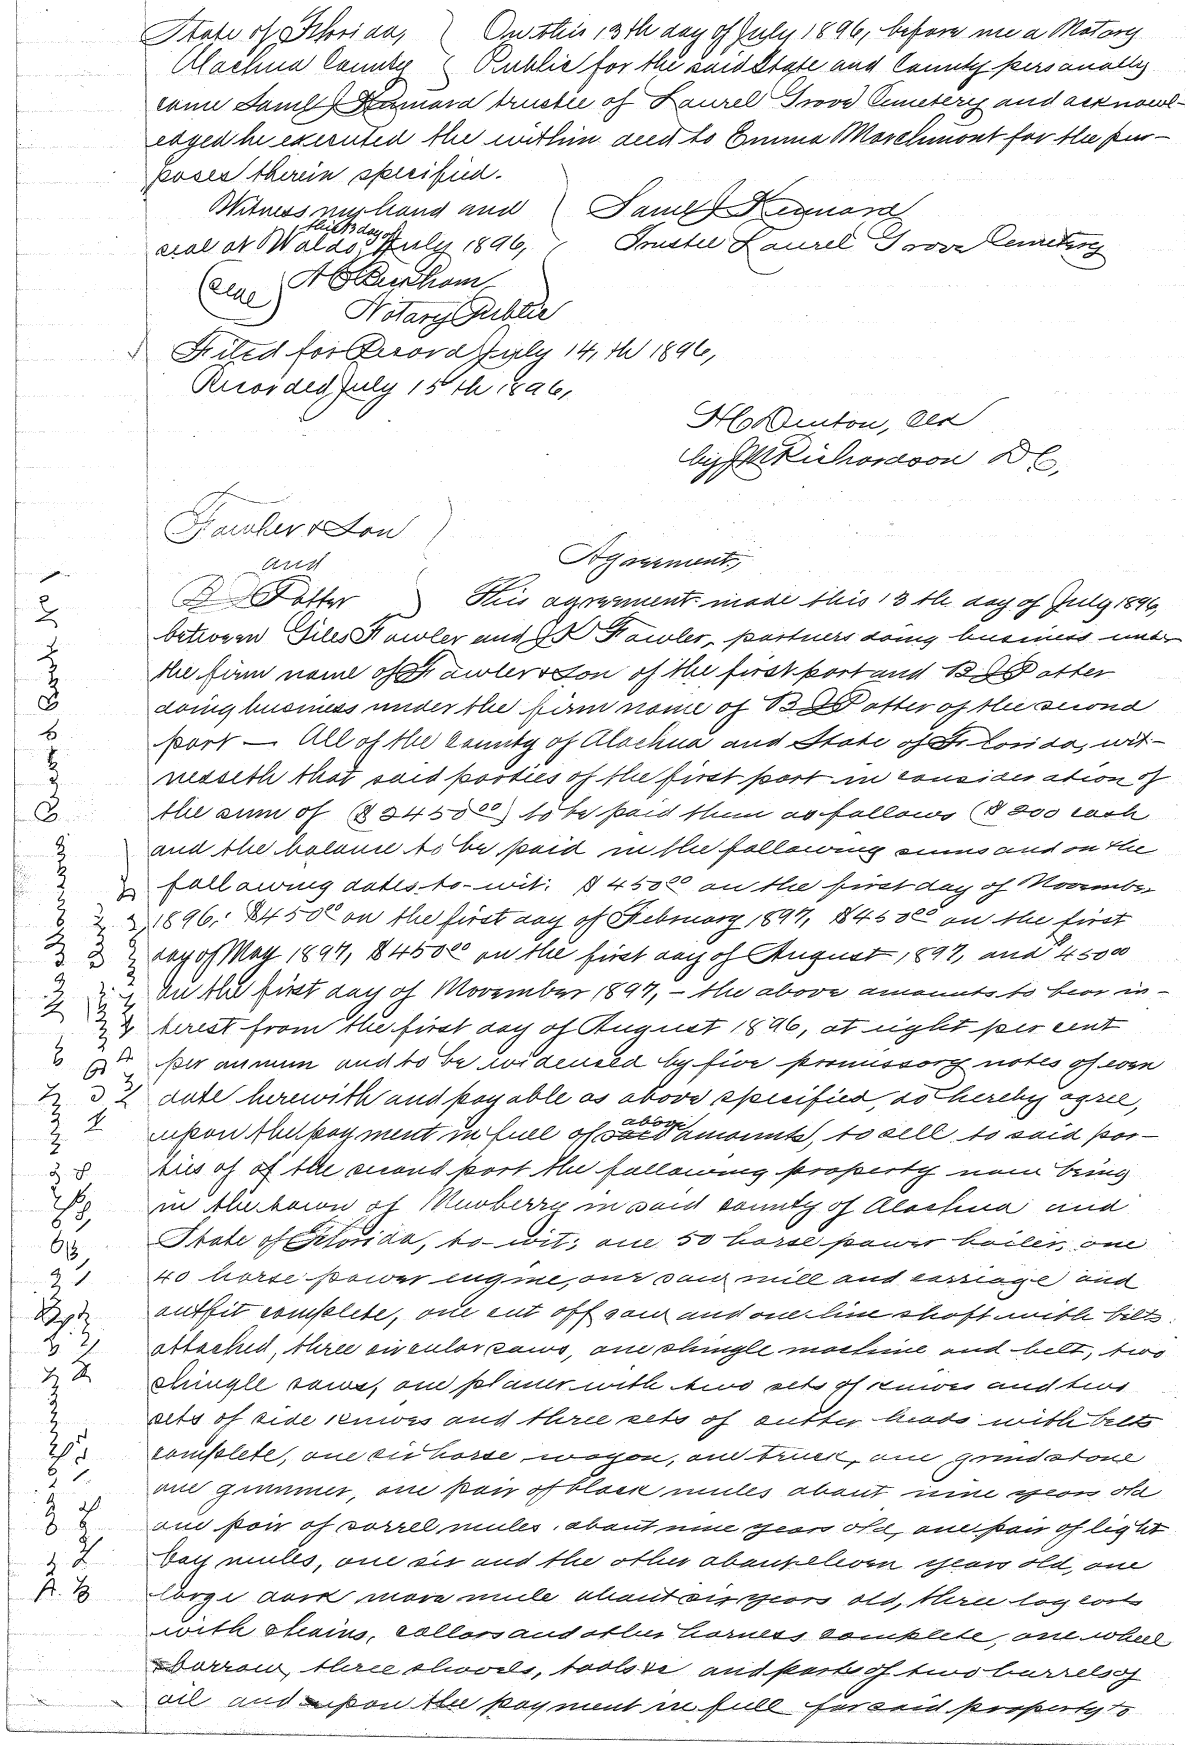 State of Florida, } On this 13th day of July 1896, before me a Notary
Alachua County } Public for the said State and County personally
came Saml J Kennard trustee of Laurel Grove Cemetery and acknowl-
edged he executed the within deed to Emma Marchmont for the pur-
poses therein specified.
Witness my hand and } Saml J Kennard
seal at Waldo, this 13th day of July 1896, } Trustee Laurel Grove Cemetery
(seal)
Notary Public
Filed for Record July 14, th 1896,
Recorded July 15th 1896,
H C Denton, Clk
by J M Richardson D C,
Fowler & Son
and
Agreement,
B Potter } This agreement made this 13 th day of July 1896,
between Giles Fowler and Fowler, partners doing business under
the firm name of Fowler & Son of the first part and B Potter
doing business under the firm name of B Potter of the second
part — All of the County of Alachua and State of Florida, wit-
nesseth that said parties of the first part in consideration of
the sum of ($2450 00) to be paid them as follows ($200 cash
and the balance to be paid in the following sums and on the
following dates, to-wit: $450 00 on the first day of November
1896; $450 00 on the first day of February 1897, $450 00 on the first
day of May 1897, $450 00 on the first day of August, 1897, and $450 00
on the first day of November 1897, - the above amounts to bear in-
terest from the first day of August 1896, at eight per cent
per annum and to be evidenced by five promissory notes of even
date herewith and payable as above specified, do hereby agree,
upon the payment in full of said above amounts, to sell to said par-
ties of of the second part the following property now being
in the town of Newberry in said county of Alachua and
State of Florida, to-wit; one 50 horse power boiler, one
40 horse power engine, one saw mill and carriage and
outfit complete, one cut off saw and one line shaft with belts
attached, three circular saws, one shingle machine and belt, two
shingle saws, one planer with two sets of knives and two
sets of side knives and three sets of cutter heads with belts
complete, one six horse wagon, one truck, one grindstone
one gummer, one pair of black mules about nine years old
one pair of sorrel mules, about nine years old, one pair of light
bay mules, one six and the other about eleven years old, one
large dark mare mule about six years old, three log carts
with chains, collars and other harness complete, one wheel
barrow, three shovels, tools and parts of two barrels of
oil and upon the payment in full for said property to